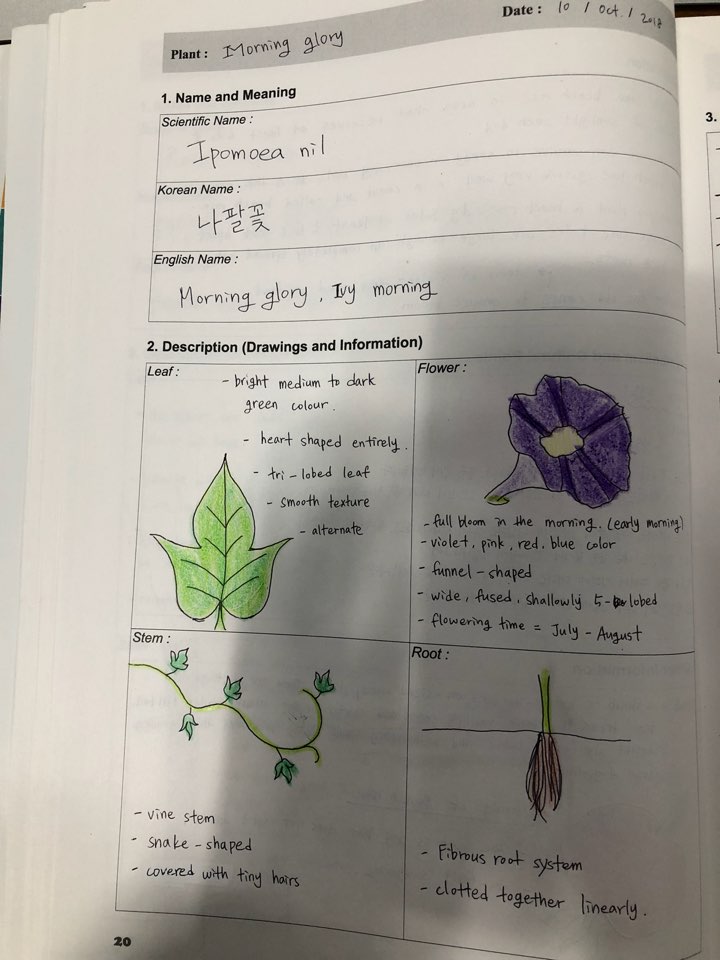 Date : 10 / Oct. / 2018
Plant : Morning glory
1. Name and Meaning
Scientific Name :
Ipomoea nil
Korean Name :
나팔꽃
English Name :
Morning glory , Ivy morning
2. Description (Drawings and Information)
Leaf :
- bright medium to dark
green colour.
- heart shaped entirely.
- tri - lobed leaf
- smooth texture
- alternate
Flower :
- full bloom in the morning. (early morning)
- violet, pink, red, blue color
- funnel - shaped
- wide, fused, shallowly 5- lobed
- flowering time = July - August
Stem :
- vine stem
- snake - shaped
- covered with tiny hairs
Root :
- Fibrous root system
- clotted together linearly.
20
3.